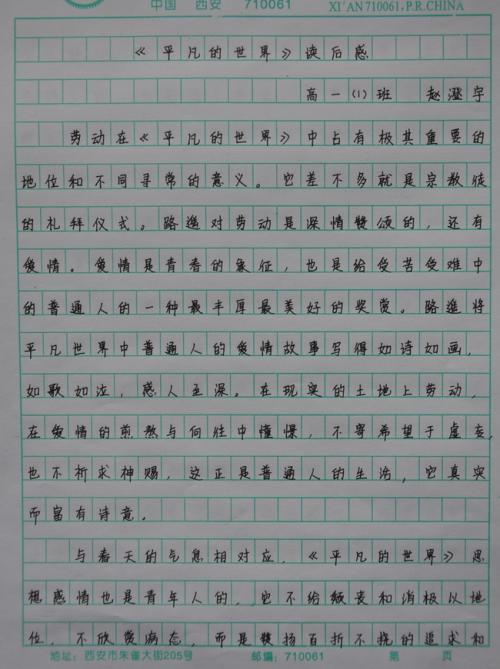 中国 西安 710061 XI'AN 710061, P.R. CHINA
《平凡的世界》读后感
高一(1)班 赵澄宇
劳动在《平凡的世界》中占有极其重要的
地位和不同寻常的意义。它差不多就是宗教徒
的礼拜仪式。路遥对劳动是深情赞颂的，还有
爱情。爱情是青春的象征，也是给受苦受难中
的普通人的一种最丰厚最美好的奖赏。路遥将
平凡世界中普通人的爱情故事写得如诗如画，
如歌如泣，感人至深。在现实的土地上劳动，
在爱情的煎熬与向往中憧憬，不寄希望于虚妄，
也不祈求神赐，这正是普通人的生活，它真实
而富有诗意。
与春天的气息相对应，《平凡的世界》思
想感情也是青年人的，它不给颓丧和消极以地
位，不欣赏病态，而是赞扬百折不挠的追求和
地址：西安市朱雀大街205号 邮编：710061 第 页